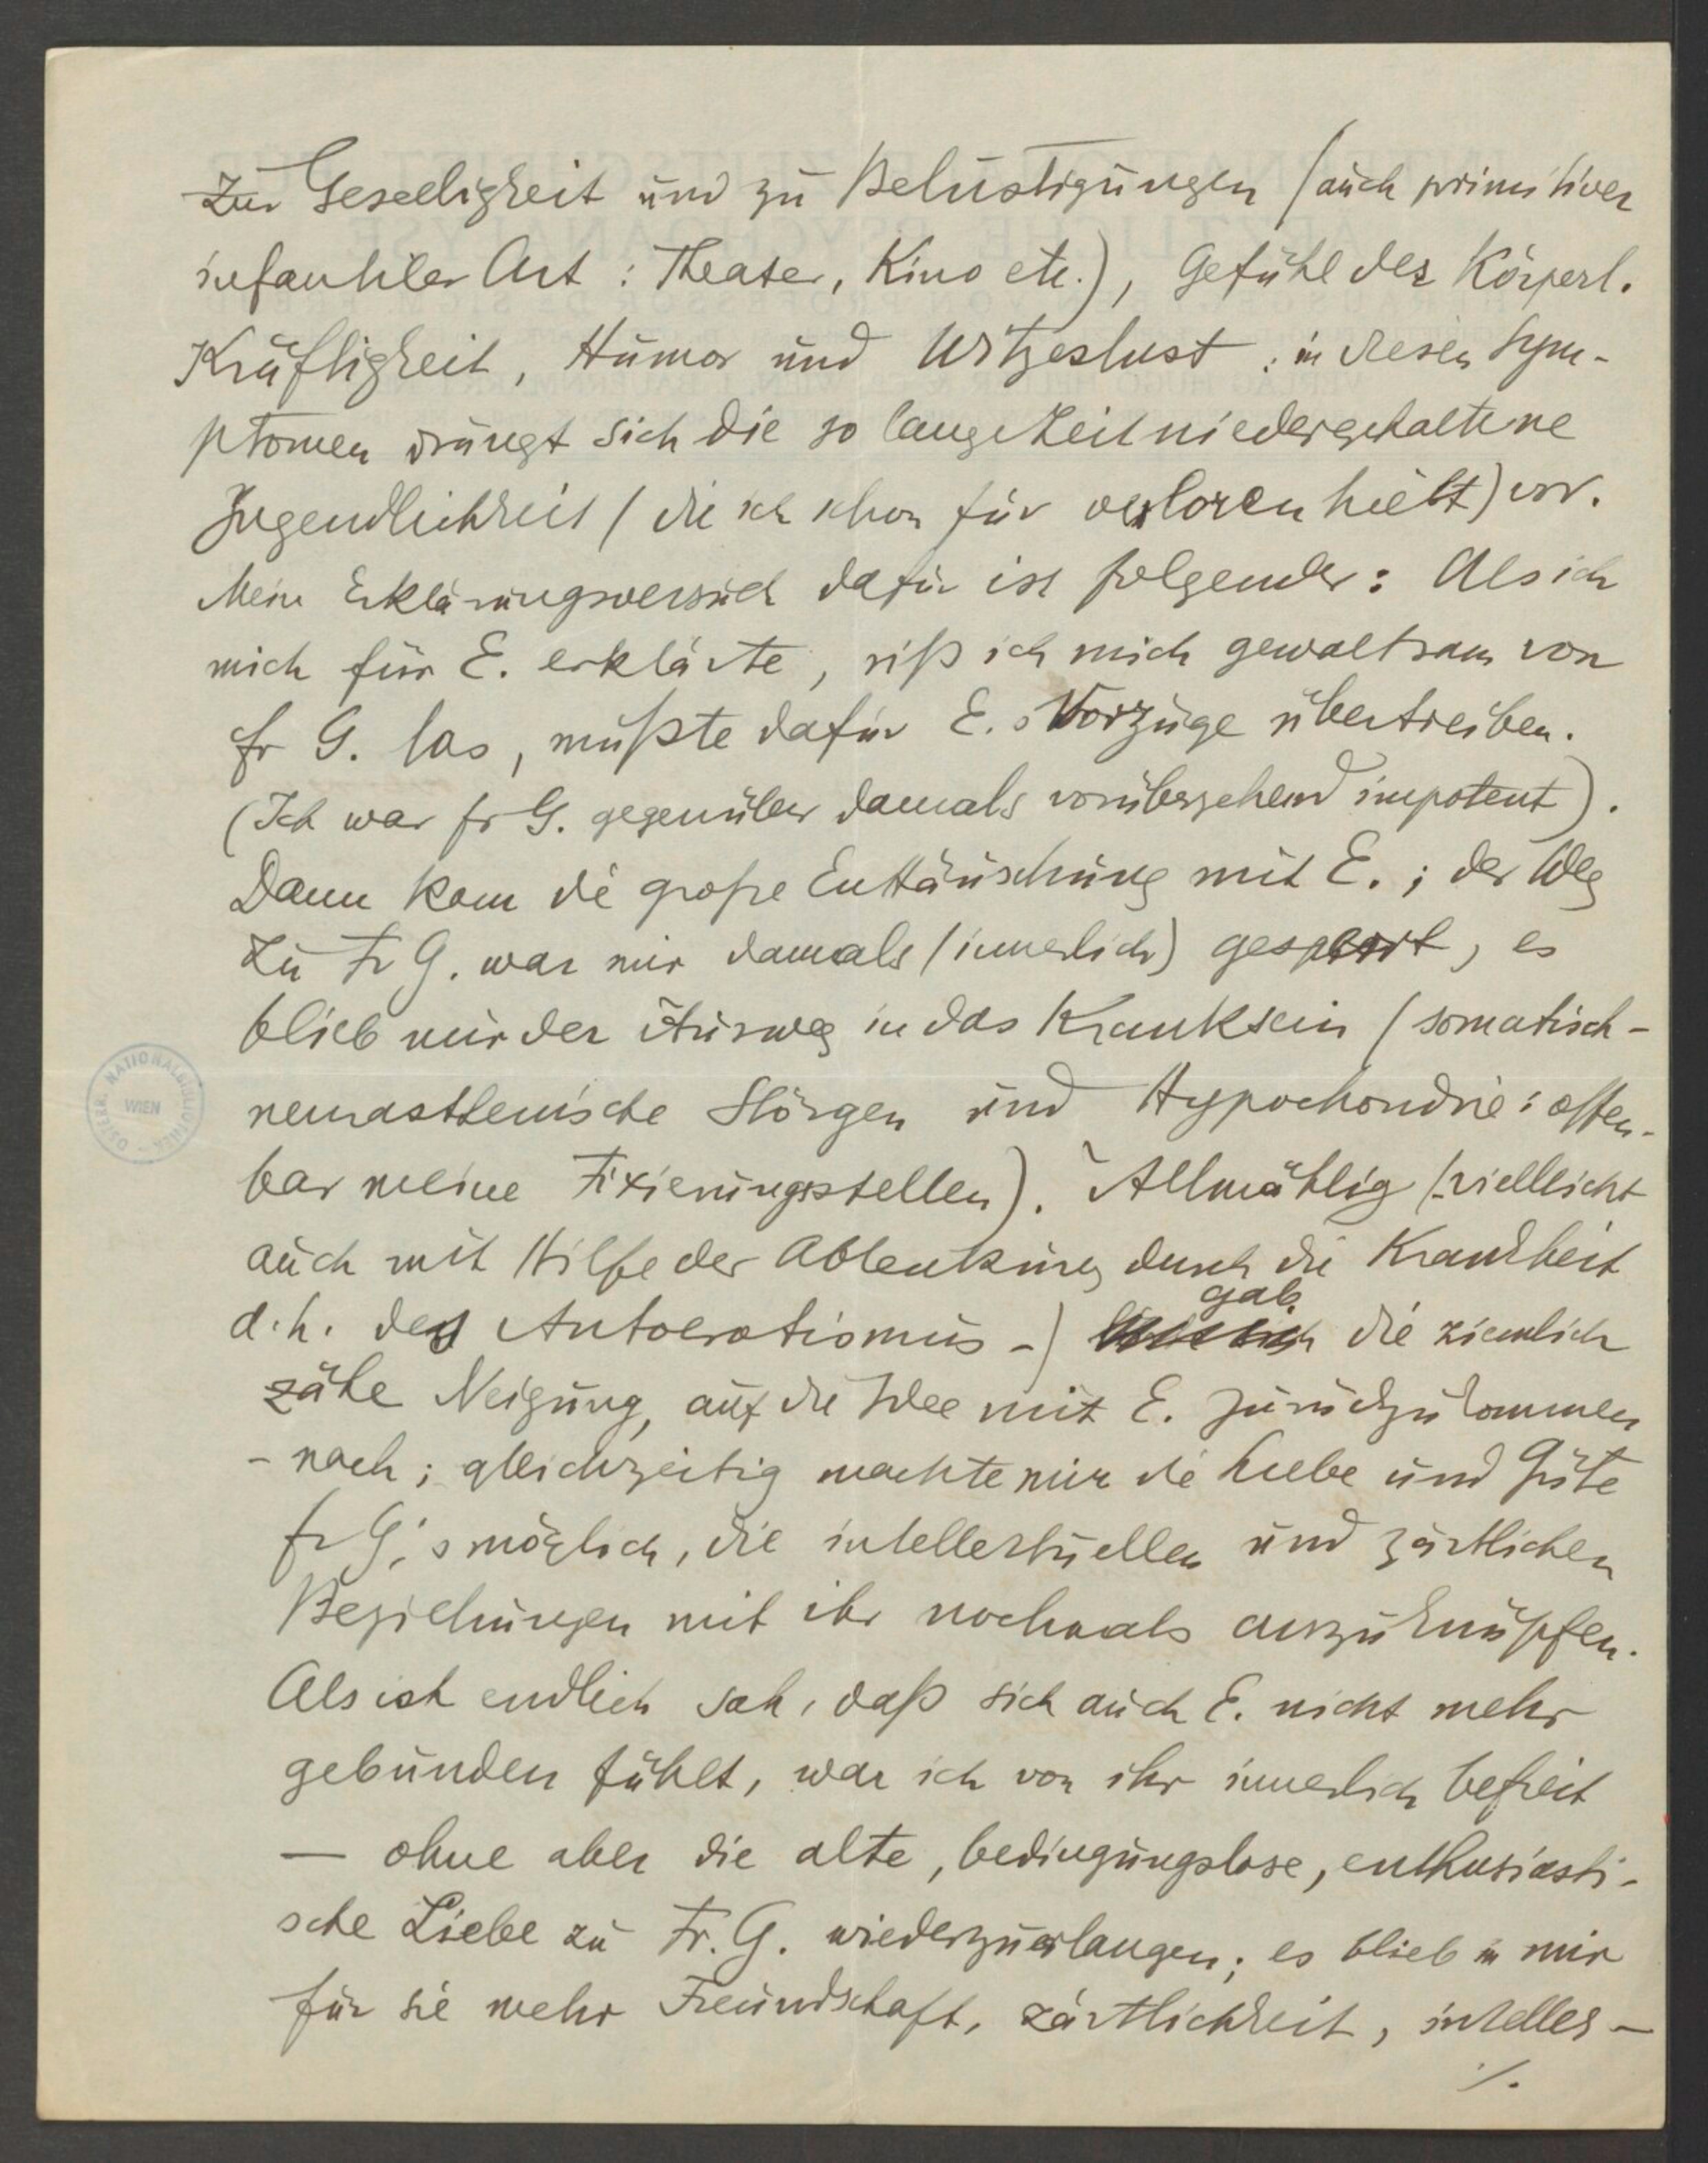 zur Geselligkeit und zu Belustigungen (auch primitiver
infantiler Art: Theater, Kino etc.), Gefühl der Körperl.
Kräftigkeit, Humor und Witzeslust: in diesen Sym-
ptomen drängt sich die so lange Zeit niedergehaltene
Jugendlichkeit (die ich schon für verloren hielt) vor.
Mein Erklärungsversuch dafür ist folgender: Als ich
mich für E. erklärte, riß ich mich gewaltsam von
fr G. los, mußte dafür E.s Vorzüge übertreiben.
(Ich war fr G. gegenüber damals vorübergehend impotent).
Dann kam die große Enttäuschung mit E.; der Weg
zu Fr G. war mir damals (innerlich) gesperrt, es
blieb mir der Ausweg in das Kranksein (somatisch-
neurasthenische Störgen und Hypochondrie: offen-
bar meine Fixierungsstellen). Allmählig (vielleicht
auch mit Hilfe der Ablenkung durch die Krankheit
d.h. des Autoerotismus -) gab die ziemlich
zähe Neigung, auf die Idee mit E. zurückzukommen
- nach; gleichzeitig machte mir die Liebe und Güte
fr G.'s möglich, die intellectuellen und zärtlichen
Beziehungen mit ihr nochmals anzuknüpfen.
Als ich endlich sah, daß sich auch E. nicht mehr
gebunden fühlt, war ich von ihr innerlich befreit
— ohne aber die alte, bedingungslose, enthusiasti-
sche Liebe zu Fr. G. wiederzuerlangen; es blieb in mir
für sie mehr Freundschaft, Zärtlichkeit, intellek-
./.
ÖSTERR. NATIONALBIBLIOTHEK
WIEN